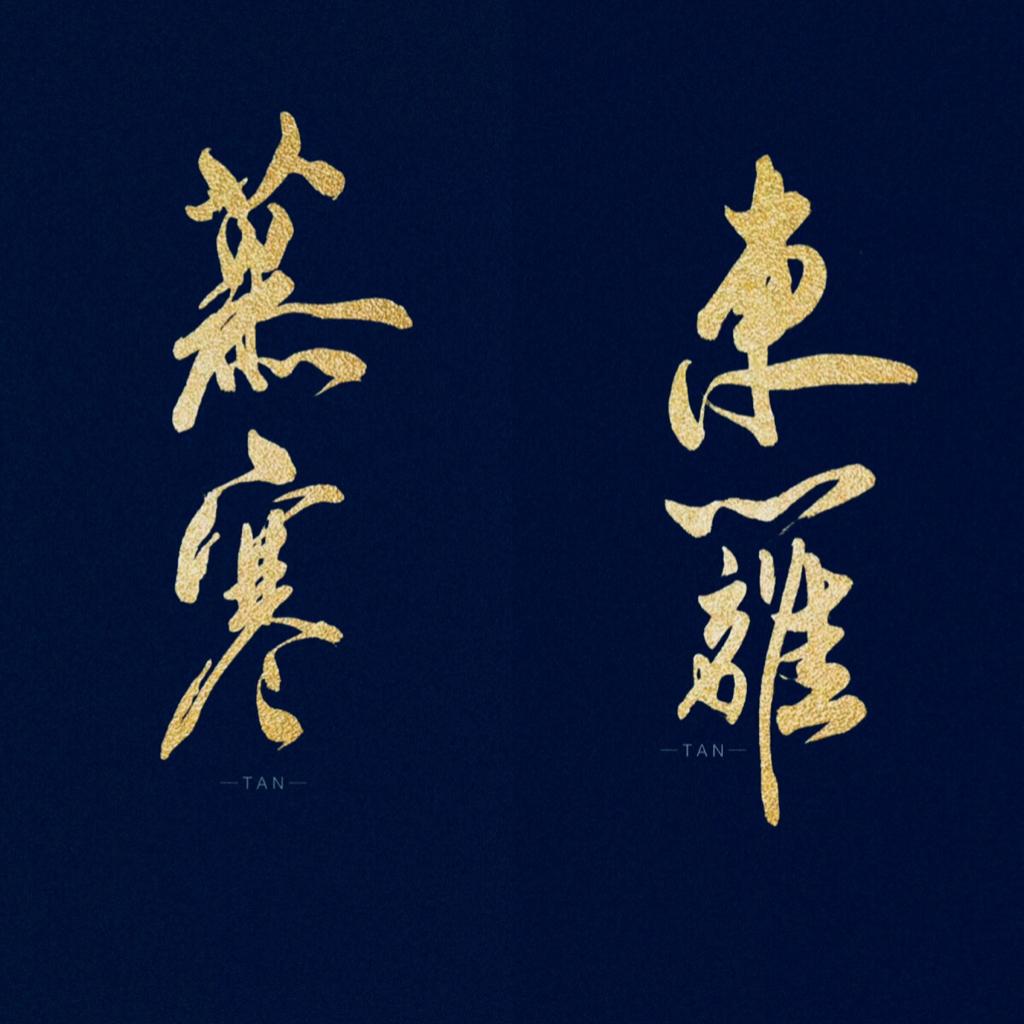 慕寒
TAN
東籬
TAN